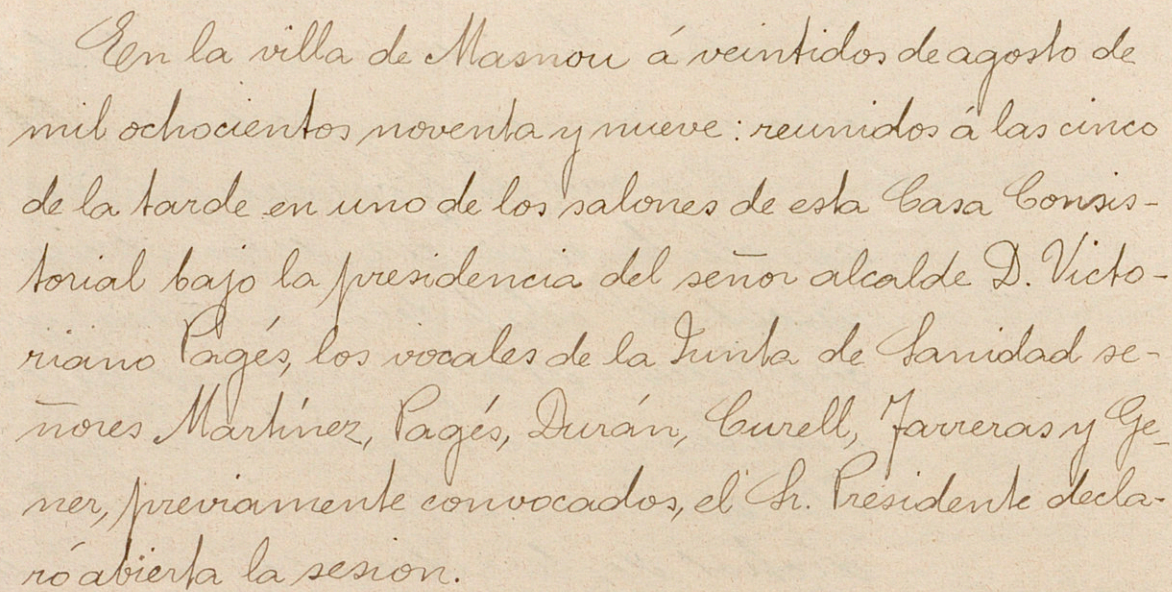 En la villa de Masnou á veintidos de agosto de
mil ochocientos noventa y nueve: reunidos á las cinco
de la tarde en uno de los salones de esta Casa Consis-
torial bajo la presidencia del señor alcalde D. Victo-
riano Pagés, los vocales de la Junta de Sanidad se-
ñores Martínez, Pagés, Durán, Curell, Farreras y Ge-
ner, previamente convocados, el Sr. Presidente decla-
ró abierta la sesion.